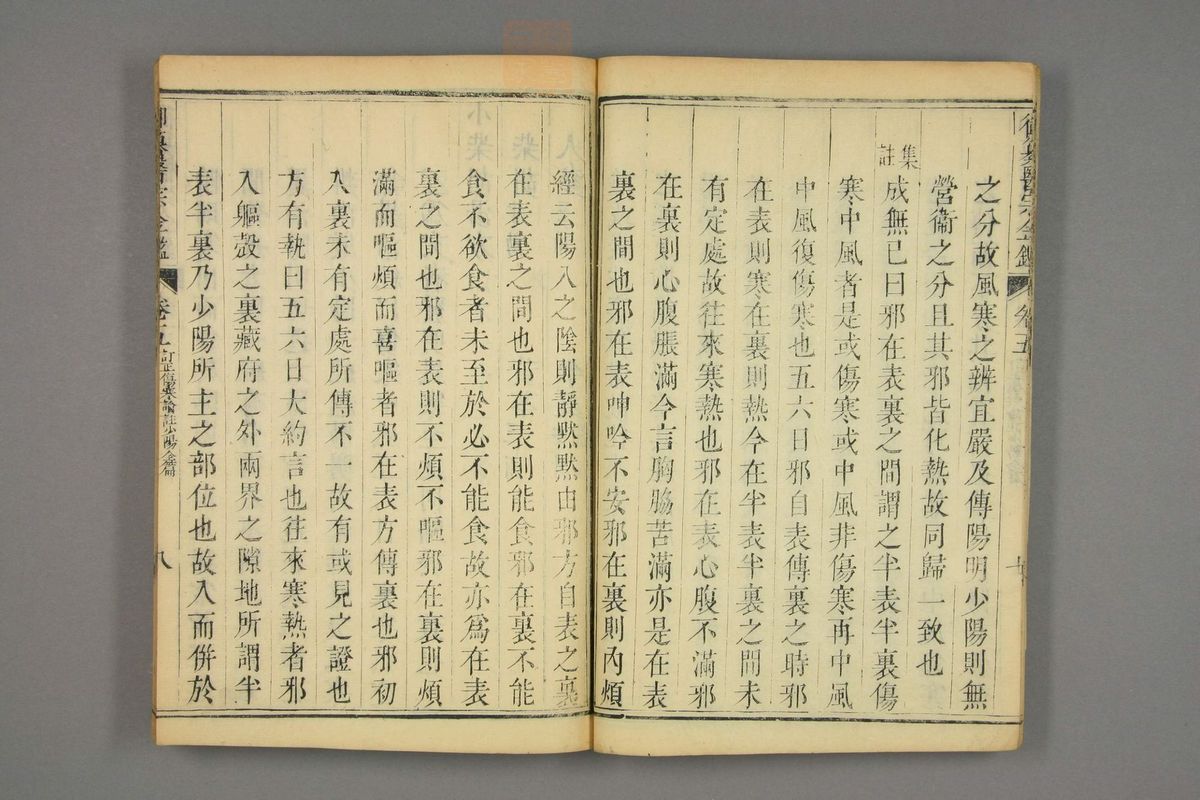 之分故風寒之辨宜嚴及傳陽明少陽則無
營衞之分且其邪皆化熱故同歸一致也
集註
成無已曰邪在表裏之間謂之半表半裏傷
寒中風者是或傷寒或中風非傷寒再中風
中風復傷寒也五六日邪自表傳裏之時邪
在表則寒在裏則熱今在半表半裏之間未
有定處故往來寒熱也邪在表心腹不滿邪
在裏則心腹脹滿今言胸脇苦滿亦是在表
裏之間也邪在表呻吟不安邪在裏則內煩
經云陽入之陰則靜默默由邪方自表之裏
在表裏之間也邪在表則能食邪在裏不能
食不欲食者未至於必不能食故亦爲在表
裏之間也邪在表則不煩不嘔邪在裏則煩
滿而嘔煩而喜嘔者邪在表方傳裏也邪初
入裏未有定處所傳不一故有或見之證也
方有執曰五六日大約言也往來寒熱者邪
入軀殼之裏藏府之外兩界之隙地所謂半
表半裏乃少陽所主之部位也故入而併於
卷十五 訂正傷寒論註少陽全篇
八